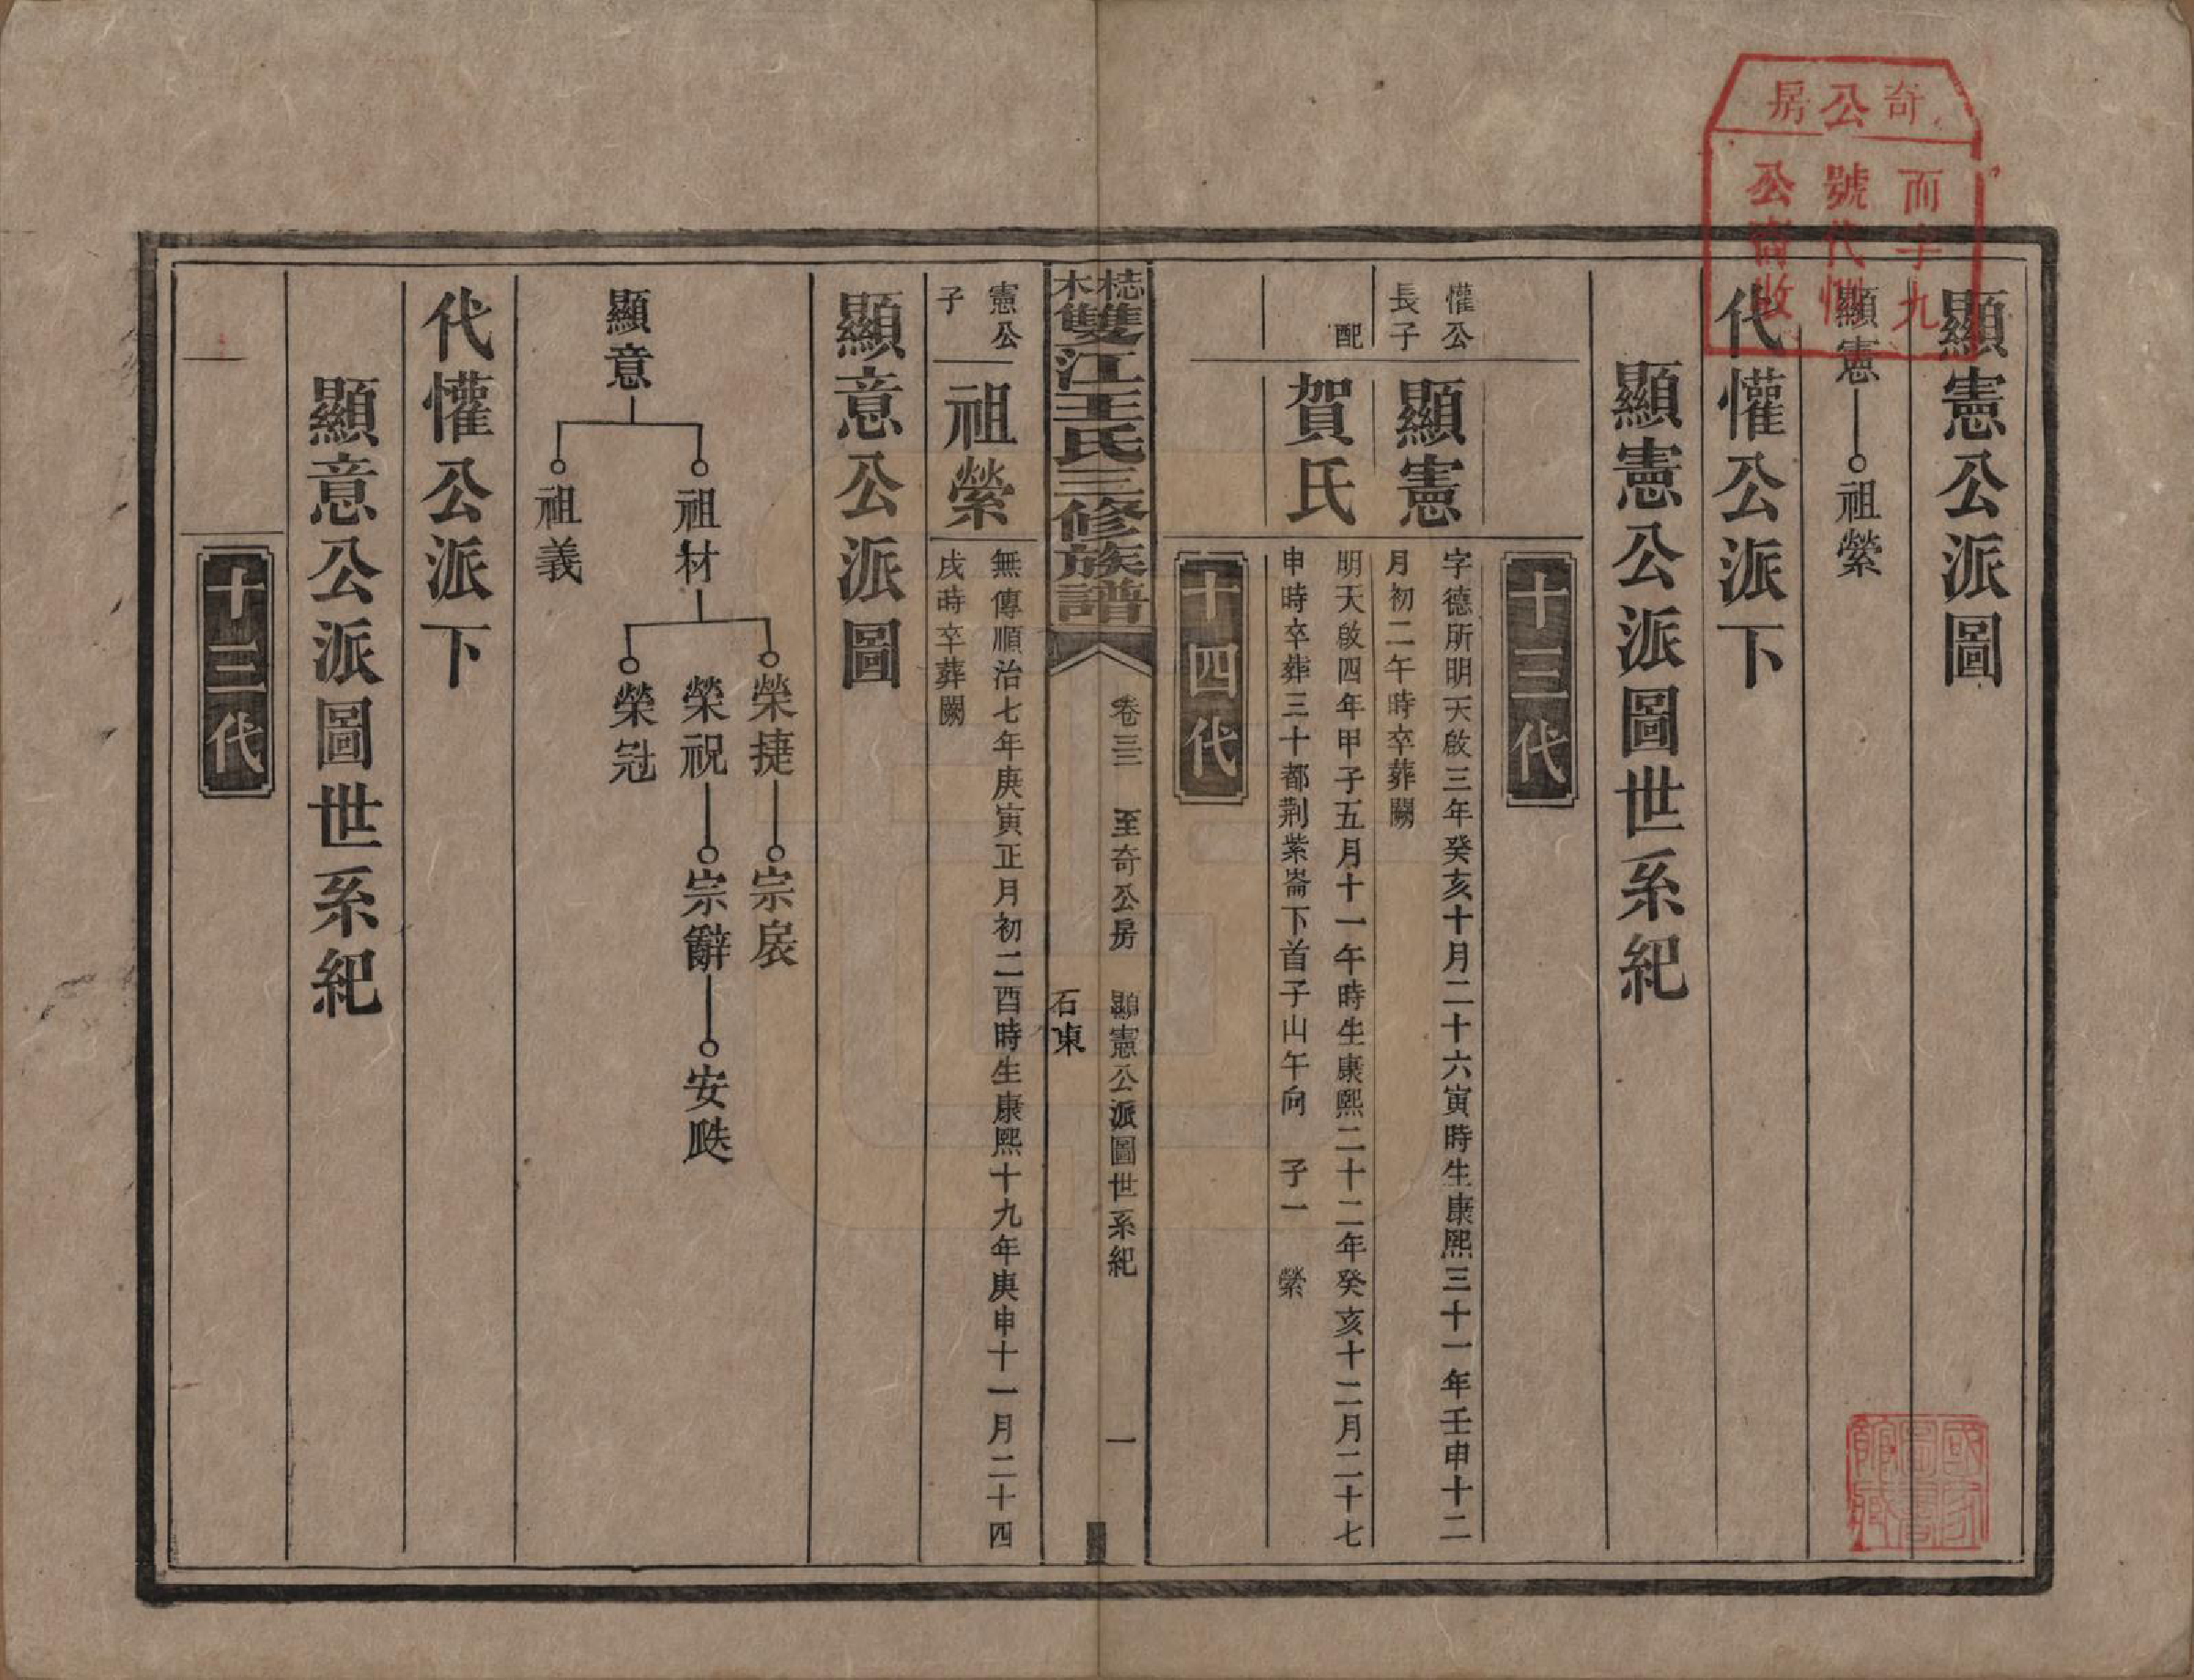 奇公房
而字九
號代
公收
顯憲公派圖
顯憲 祖縈
代懽公派下
顯憲公派圖世系紀
十三代
懽公長子
顯憲
字德所明天啟三年癸亥十月二十六寅時生康熙三十一年壬申十二
月初二午時卒葬闕
配
賀氏
明天啟四年甲子五月十一午時生康熙二十二年癸亥十二月二十七
申時卒葬三十都荆紫崙下首子山午向 子一 縈
十四代
雙江王氏三修族譜
卷三 至奇公房 顯憲公派圖世系紀 一
石東
憲公子
祖縈
無傳順治七年庚寅正月初二酉時生康熙十九年庚申十一月二十四
戌時卒葬闕
顯意公派圖
顯意
祖材
祖義
榮捷 宗扆
榮祝 宗辭 安瓞
榮冠
代懽公派下
顯意公派圖世系紀
十三代
國家圖書館藏